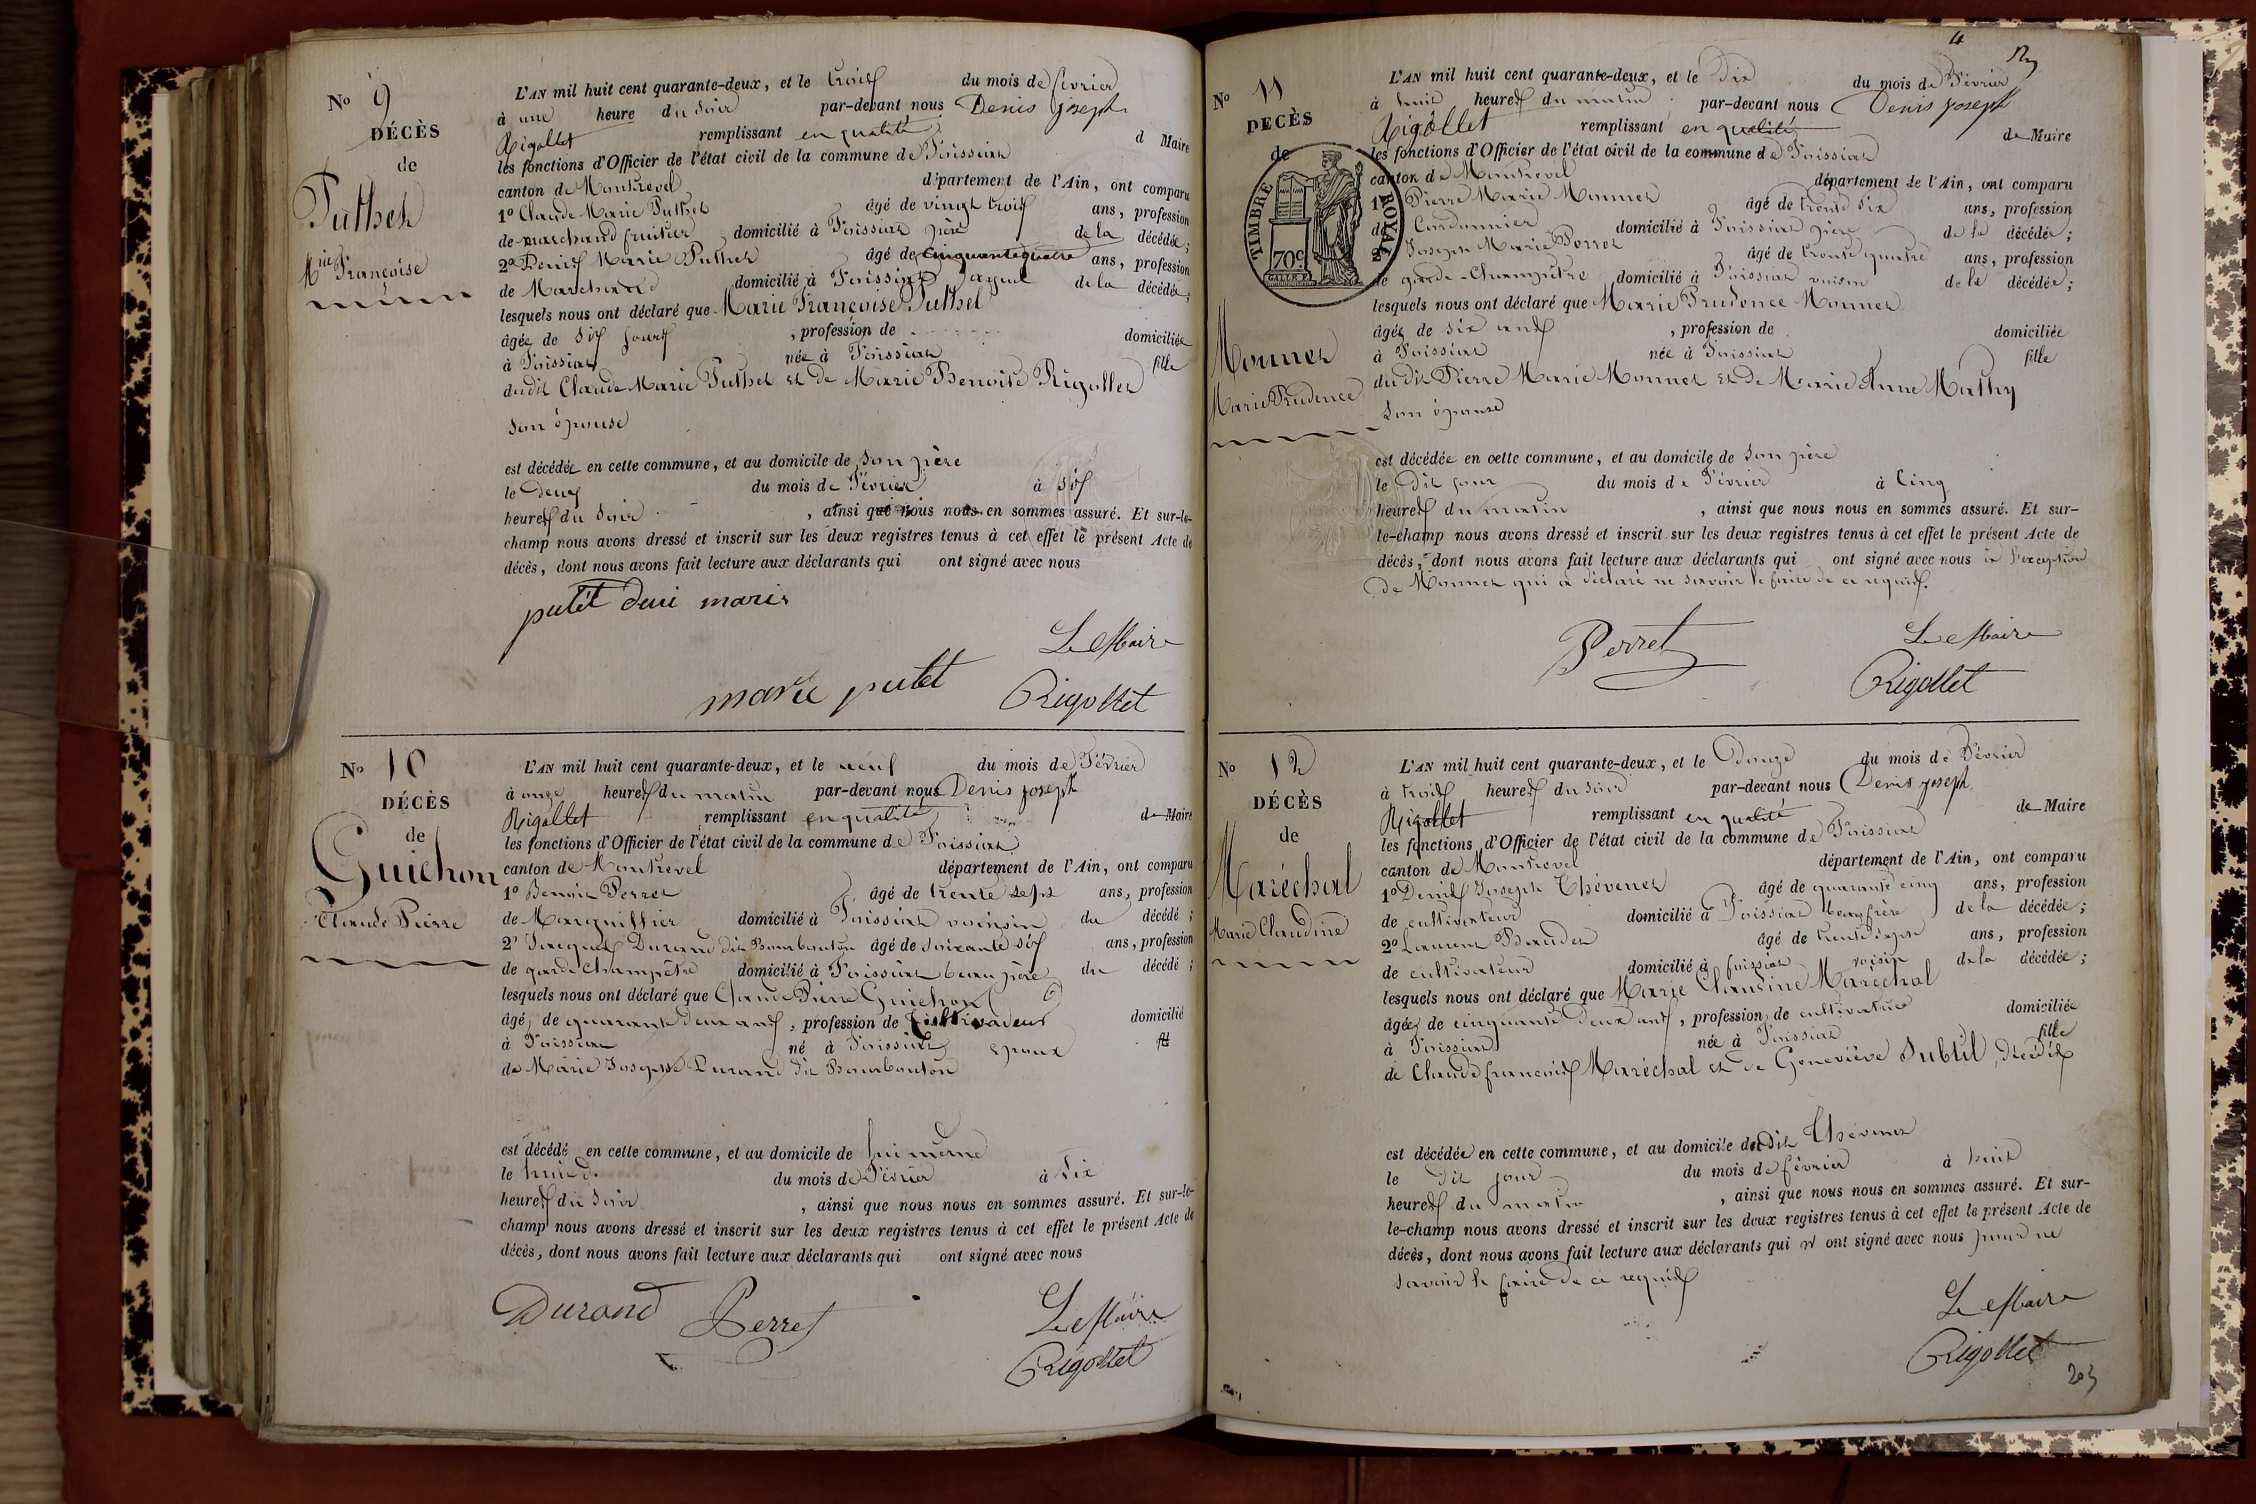 No 9
DÉCÈS
de
Puthet
Mie Françoise
L'AN mil huit cent quarante-deux, et le trois du mois de février
à une heure du soir par-devant nous Denis Joseph
Rigollet remplissant en qualité d Maire
les fonctions d'Officier de l'état civil de la commune de Foissiat
canton de Montrevel département de l'Ain, ont comparu
1o Claude Marie Puthet âgé de vingt trois ans, profession
de marchand fruitier domicilié à Foissiat père de la décédée;
2o Denis Marie Puthet âgé de cinquante quatre ans, profession
de Marchand domicilié à Foissiat ayeul de la décédée;
lesquels nous ont déclaré que Marie Françoise Puthet
âgée de dix jours, profession de domiciliée
à Foissiat née à Foissiat fille
dudit Claude Marie Puthet et de Marie Benoite Rigollet
son épouse
est décédée en cette commune, et au domicile de son père
le deux du mois de Février à dix
heures du soir, ainsi que nous nous en sommes assuré. Et sur-le-
champ nous avons dressé et inscrit sur les deux registres tenus à cet effet le présent Acte de
décès, dont nous avons fait lecture aux déclarants qui ont signé avec nous
putet deni marie
Le Maire
marie putet Rigollet
No 10
DÉCÈS
de
Guichon
Claude Pierre
L'AN mil huit cent quarante-deux, et le neuf du mois de Février
à onze heures du matin par-devant nous Denis joseph
Rigollet remplissant en qualité de Maire
les fonctions d'Officier de l'état civil de la commune de Foissiat
canton de Montrevel département de l'Ain, ont comparu
1o Benoit Perret âgé de trente sept ans, profession
de Marguillier domicilié à Foissiat voinsin du décédé;
2o Jacques Durand dit Bourbouton âgé de soixante dix ans, profession
de garde champêtre domicilié à Foissiat beau père du décédé;
lesquels nous ont déclaré que Claude Pierre Guichon
âgé de quarante deux ans, profession de Cultivateur domicilié
à Foissiat né à Foissiat époux
de Marie Josephe Durand dit Bourbouton
est décédé en cette commune, et au domicile de lui même
le huit du mois de Février à Six
heures du soir, ainsi que nous nous en sommes assuré. Et sur-le-
champ nous avons dressé et inscrit sur les deux registres tenus à cet effet le présent Acte de
décès, dont nous avons fait lecture aux déclarants qui ont signé avec nous
Durand Perret Le Maire
Rigollet
4
No 11
DÉCÈS
de
TIMBRE ROYAL
70c
Monnet
Marie Prudence
L'AN mil huit cent quarante-deux, et le Dix du mois de Février
à huit heures du matin par-devant nous Denis joseph
Rigollet remplissant en qualité de Maire
les fonctions d'Officier de l'état civil de la commune de Foissiat
canton de Montrevel département de l'Ain, ont comparu
1o Pierre Marie Monnet âgé de trente six ans, profession
de Cordonnier domicilié à Foissiat père de la décédée;
Joseph Marie Perret âgé de trente quatre ans, profession
de garde-Champêtre domicilié à Foissiat voisin de la décédée;
lesquels nous ont déclaré que Marie Prudence Monnet
âgée de six ans, profession de domiciliée
à Foissiat née à Foissiat fille
dudit Pierre Marie Monnet et de Marie Anne Mathy
son épouse
est décédée en cette commune, et au domicile de son père
le dit jour du mois de Février à Cinq
heures du matin, ainsi que nous nous en sommes assuré. Et sur-
le-champ nous avons dressé et inscrit sur les deux registres tenus à cet effet le présent Acte de
décès, dont nous avons fait lecture aux déclarants qui ont signé avec nous à l'exception
de Monnet qui a déclaré ne savoir le faire de ce requis.
Perret Le Maire
Rigollet
No 12
DÉCÈS
de
Maréchal
Marie Claudine
L'AN mil huit cent quarante-deux, et le Douze du mois de Février
à trois heures du soir par-devant nous Denis joseph
Rigollet remplissant en qualité de Maire
les fonctions d'Officier de l'état civil de la commune de Foissiat
canton de Montrevel département de l'Ain, ont comparu
1o Denis Joseph Thévenet âgé de quarante cinq ans, profession
de cultivateur domicilié à Foissiat beau frère de la décédée;
2o Laurent Baudet âgé de trente sept ans, profession
de cultivateur domicilié à foissiat voisin de la décédée;
lesquels nous ont déclaré que Marie Claudine Maréchal
âgée de cinquante deux ans, profession de cultivatrice domiciliée
à Foissiat née à Foissiat fille
de Claude françois Maréchal et de Geneviève Subtil, décédés
est décédée en cette commune, et au domicile dudit Thévenet
le dit jour du mois de février à huit
heures du matin, ainsi que nous nous en sommes assuré. Et sur-
le-champ nous avons dressé et inscrit sur les deux registres tenus à cet effet le présent Acte de
décès, dont nous avons fait lecture aux déclarants qui n' ont signé avec nous pour ne
savoir le faire de ce requis
Le Maire
Rigollet
203